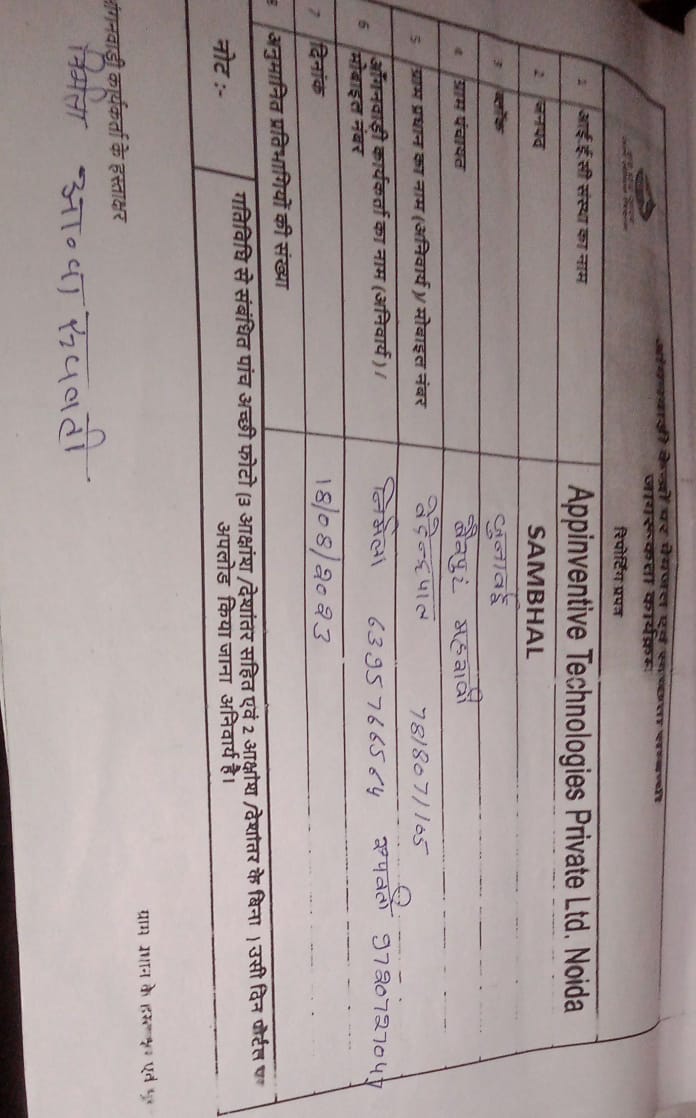 आंगनवाड़ी केन्द्रों पर पेयजल एवं स्वच्छता सम्बन्धी
जागरूकता कार्यक्रम
रिपोर्टिंग प्रपत्र
1 आई ई सी संस्था का नाम Appinventive Technologies Private Ltd. Noida
2 जनपद SAMBHAL
3 ब्लॉक जुनावई
4 ग्राम पंचायत
5 ग्राम प्रधान का नाम (अनिवार्य)/ मोबाइल नंबर 7818071105
6 आँगनवाड़ी कार्यकर्ता का नाम (अनिवार्य) / निर्मला 6395766564 रूपवती 9720727047
मोबाइल नंबर
7 दिनांक 18/08/2023
8 अनुमानित प्रतिभागियों की संख्या
नोट :- गतिविधि से संबंधित पांच अच्छी फोटो (3 आक्षांश /देशांतर सहित एवं 2 आक्षांश /देशांतर के बिना ) उसी दिन पोर्टल पर
अपलोड किया जाना अनिवार्य है।
आंगनवाड़ी कार्यकर्ता के हस्ताक्षर
ग्राम प्रधान के
निर्मला